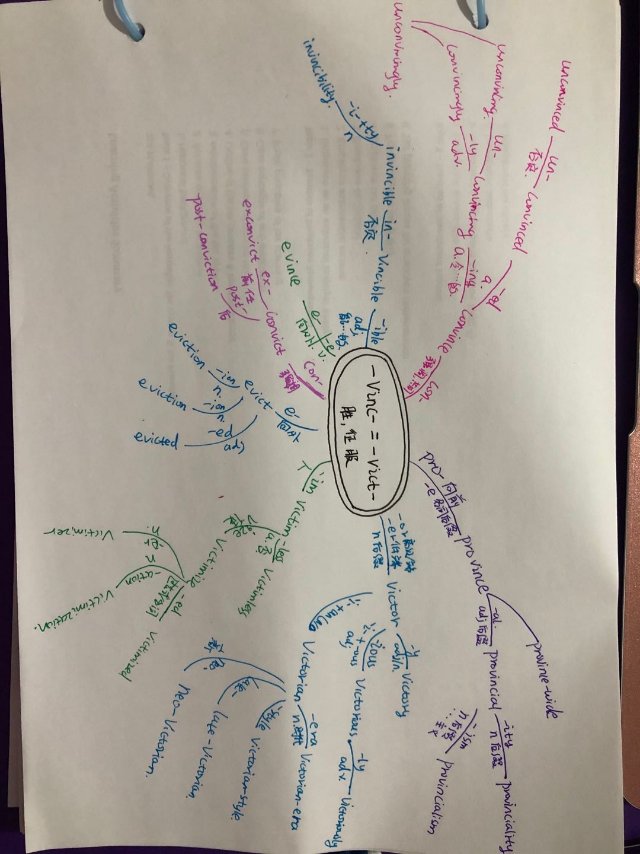 -Vinc- = -Vict-
胜, 征服
con-
Convince
-ed
a.
Convinced
un-
否定
unconvinced
-ing
a.令…的
Convincing
un-
unconvincing
-ly
adv.
convincingly
unconvincingly.
-ible
adj.
能…的
Vincible
in-
否定
invincible
-i-+ty
n
invincibility.
e-
向外
-e
v.
evince
Con-
Convict
ex-
前任
exconvict
post-
后
post-conviction
e-
向外
evict
-ion
n.
eviction
-ion
n.
eviction
-ed
adj
evicted
-im
人
Victim
-less
a.否
Victimless
-ize
Victimize
-er
n.
Victimizer
-ation
n
Victimization.
-ed
Victimized
-or
-er
n后缀
Victor
-y
Victory
-ious
i.+-ous
adj
Victorious
-ly
adv
Victoriously
Victorian
-era
n.
Victorian-era
-style
Victorian-style
late-Victorian
neo-Victorian.
pro- 向前
-e 名词后缀
province
province-wide
-al
adj后缀
provincial
-ity
n后缀
provinciality
-ism
n后缀
provincialism